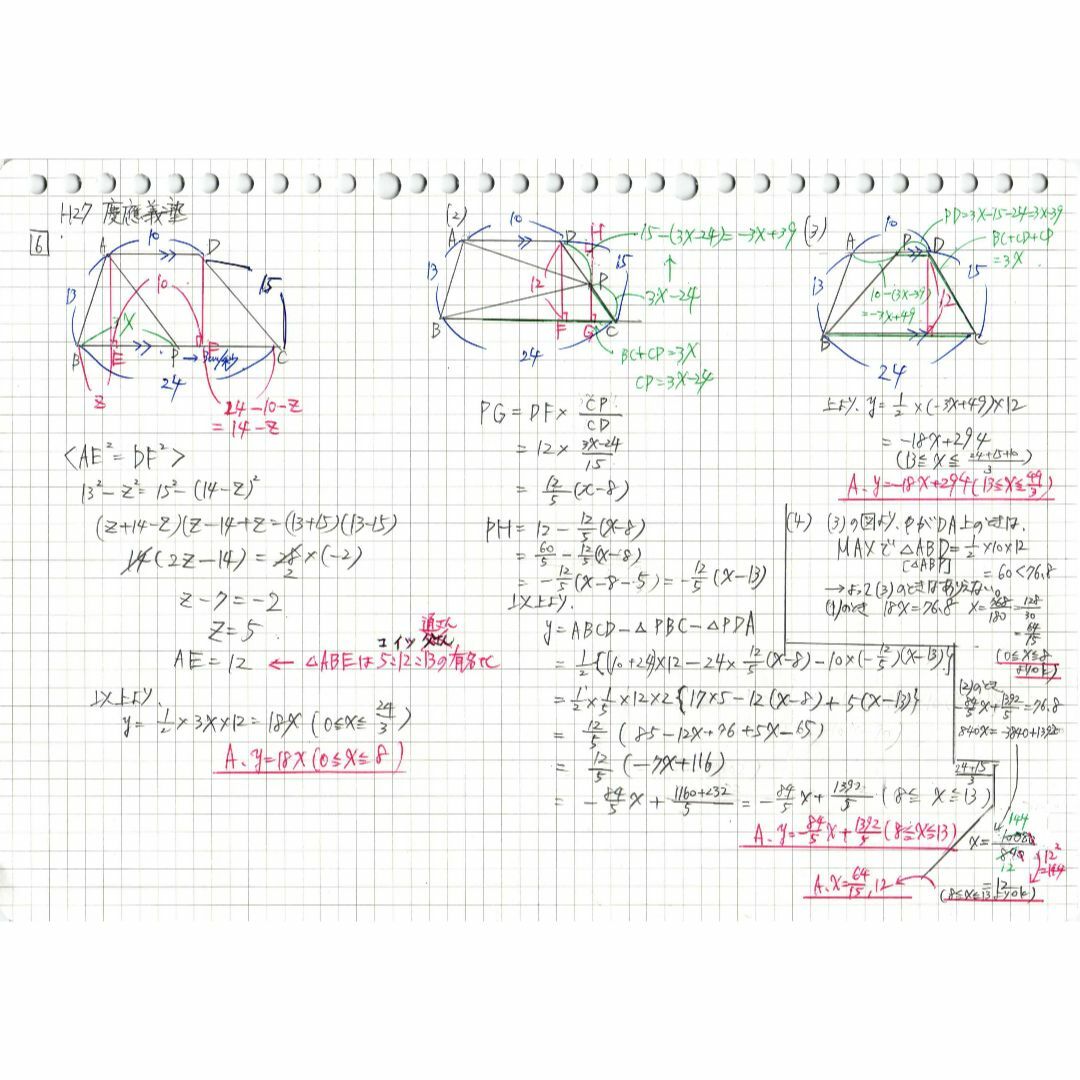 H27 慶應義塾
6
A 10 D
13
10
15
x
B E P F C
→3cm/秒
24
z
24-10-z
=14-z
<AE²=DF²>
13²-z²=15²-(14-z)²
(z+14-z)(z-14+z)=(13+15)(13-15)
14(2z-14)=28×(-2)
2
z-7=-2
z=5
AE=12 ← △ABEは5:12:13の有名
以上より、
y=1/2×3x×12=18x (0≦x≦24/3)
A. y=18x (0≦x≦8)
(2)
A 10 D H
15-(3x-24)=-3x+39
13
12
15
P
3x-24
B F G C
24
BC+CP=3x
CP=3x-24
PG=DF×CP/CD
=12×3x-24/15
=12/5(x-8)
PH=12-12/5(x-8)
=60/5-12/5(x-8)
=-12/5(x-8-5)=-12/5(x-13)
以上より、
y=ABCD-△PBC-△PDA
=1/2{(10+24)×12-24×12/5(x-8)-10×(-12/5)(x-13)}
=1/2×1/5×12×2{17×5-12(x-8)+5(x-13)}
=12/5(85-12x+96+5x-65)
=12/5(-7x+116)
=-84/5x+1160+232/5=-84/5x+1392/5 (8≦x≦13)
24+15/3
A. y=-84/5x+1392/5 (8≦x≦13)
(3)
A 10 P D
PD=3x-15-24=3x-39
BC+CD+DP
=3x
13
10-(3x-39)
=-3x+49
12
15
B C
24
以上より、y=1/2×(-3x+49)×12
=-18x+294
(13≦x≦24+15+10/3)
A. y=-18x+294 (13≦x≦49/3)
(4) (3)の図より、PがDA上のときは、
MAXで△ABD=1/2×10×12
[△ABP]
=60<76.8
→よって(3)のときはありえない。
(1)のとき 18x=76.8 x=768/180=128/30
=64/15
(0≦x≦8よりok)
(2)のとき
-84/5x+1392/5=76.8
840x=-3840+13920
x=10080/840
144
12
12²
=144
=12
(8≦x≦13よりok)
A. x=64/15, 12